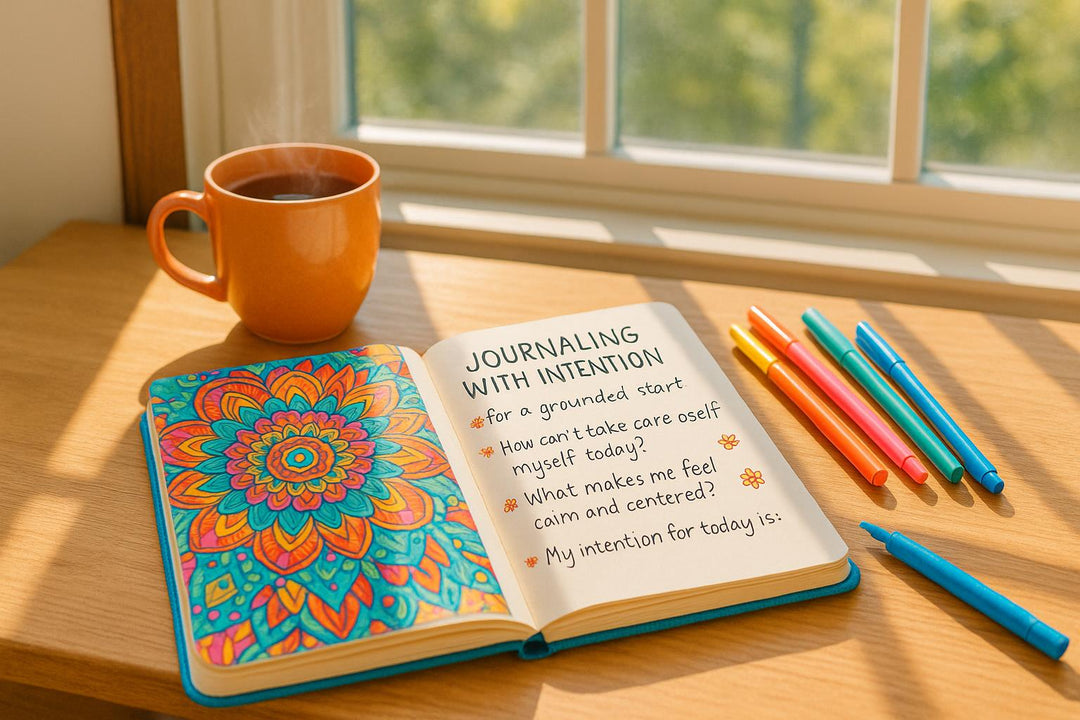 JOURNALING
WITH INTENTION
for a grounded start
How can't take care oself
myself today?
What makes me feel
caim and centered?
My intention for today is: